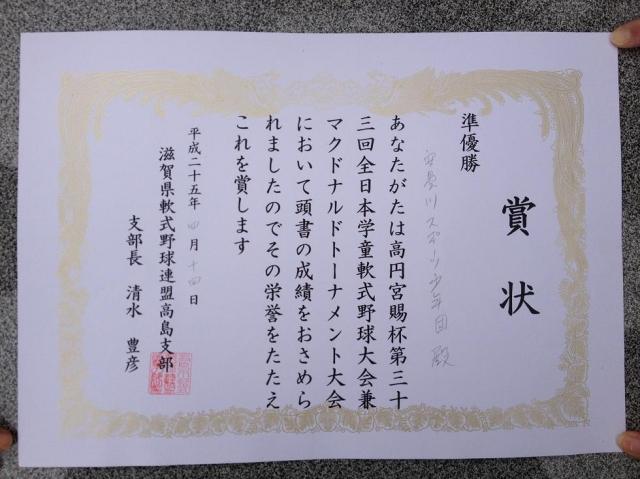 賞状
準優勝
安曇川スポーツ少年団 殿
あなたがたは高円宮賜杯第三十
三回全日本学童軟式野球大会兼
マクドナルドトーナメント大会
において頭書の成績をおさめら
れましたのでその栄誉をたたえ
これを賞します
平成二十五年四月十四日
滋賀県軟式野球連盟高島支部
支部長 清水 豊彦